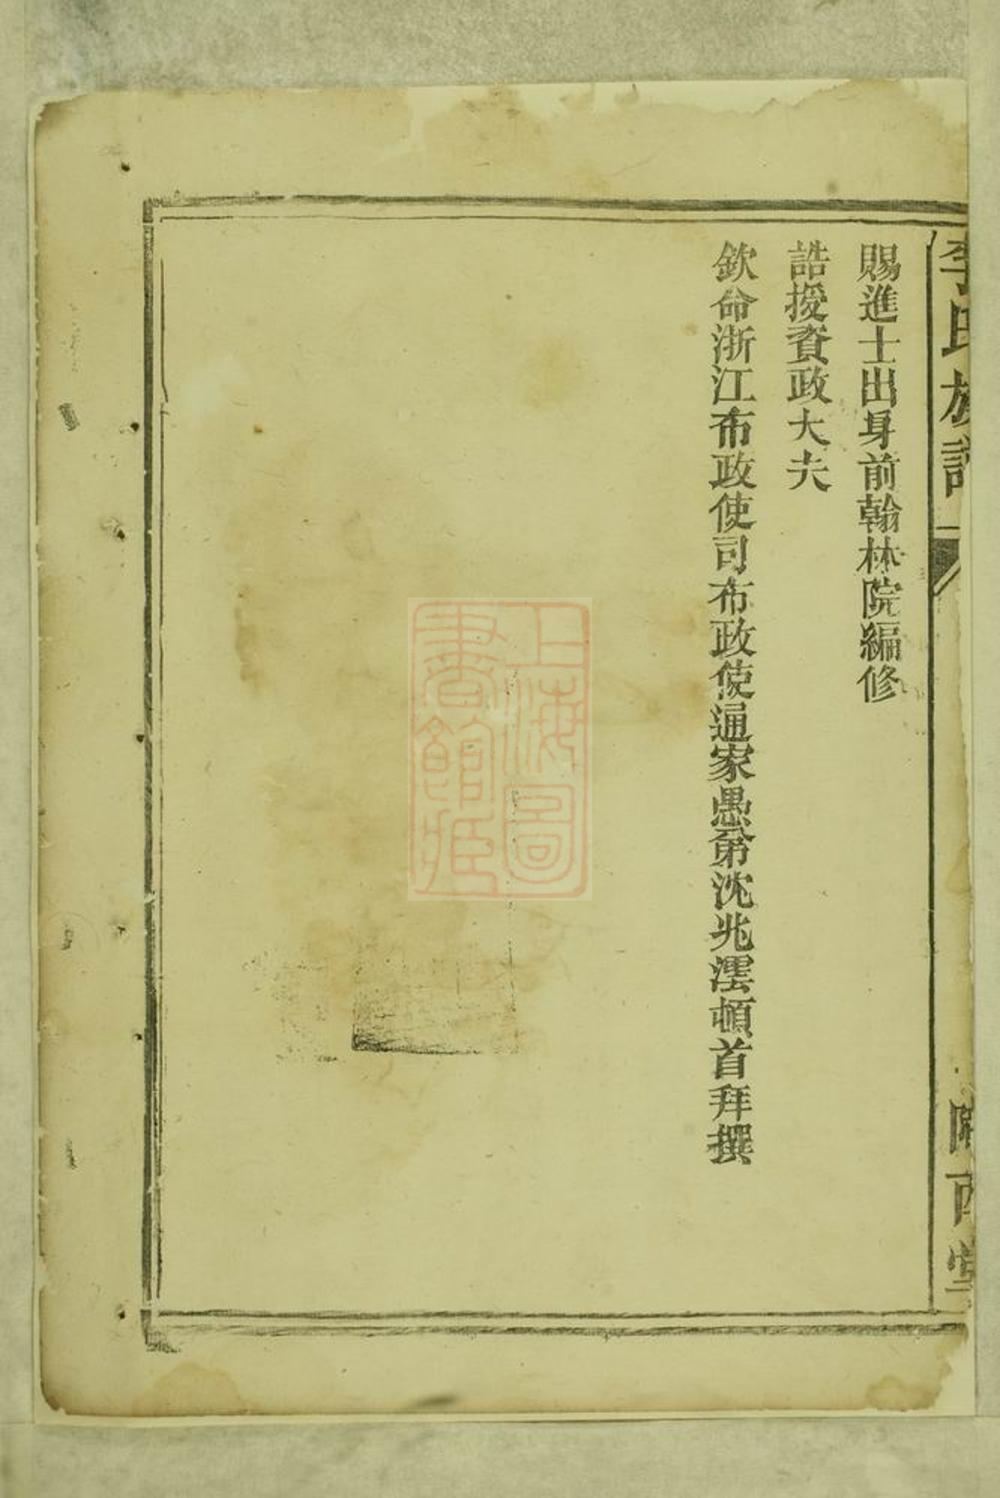 李氏族譜
隴西堂
賜進士出身前翰林院編修
誥授資政大夫
欽命浙江布政使司布政使通家愚弟沈兆澐頓首拜撰
上海圖
書館藏